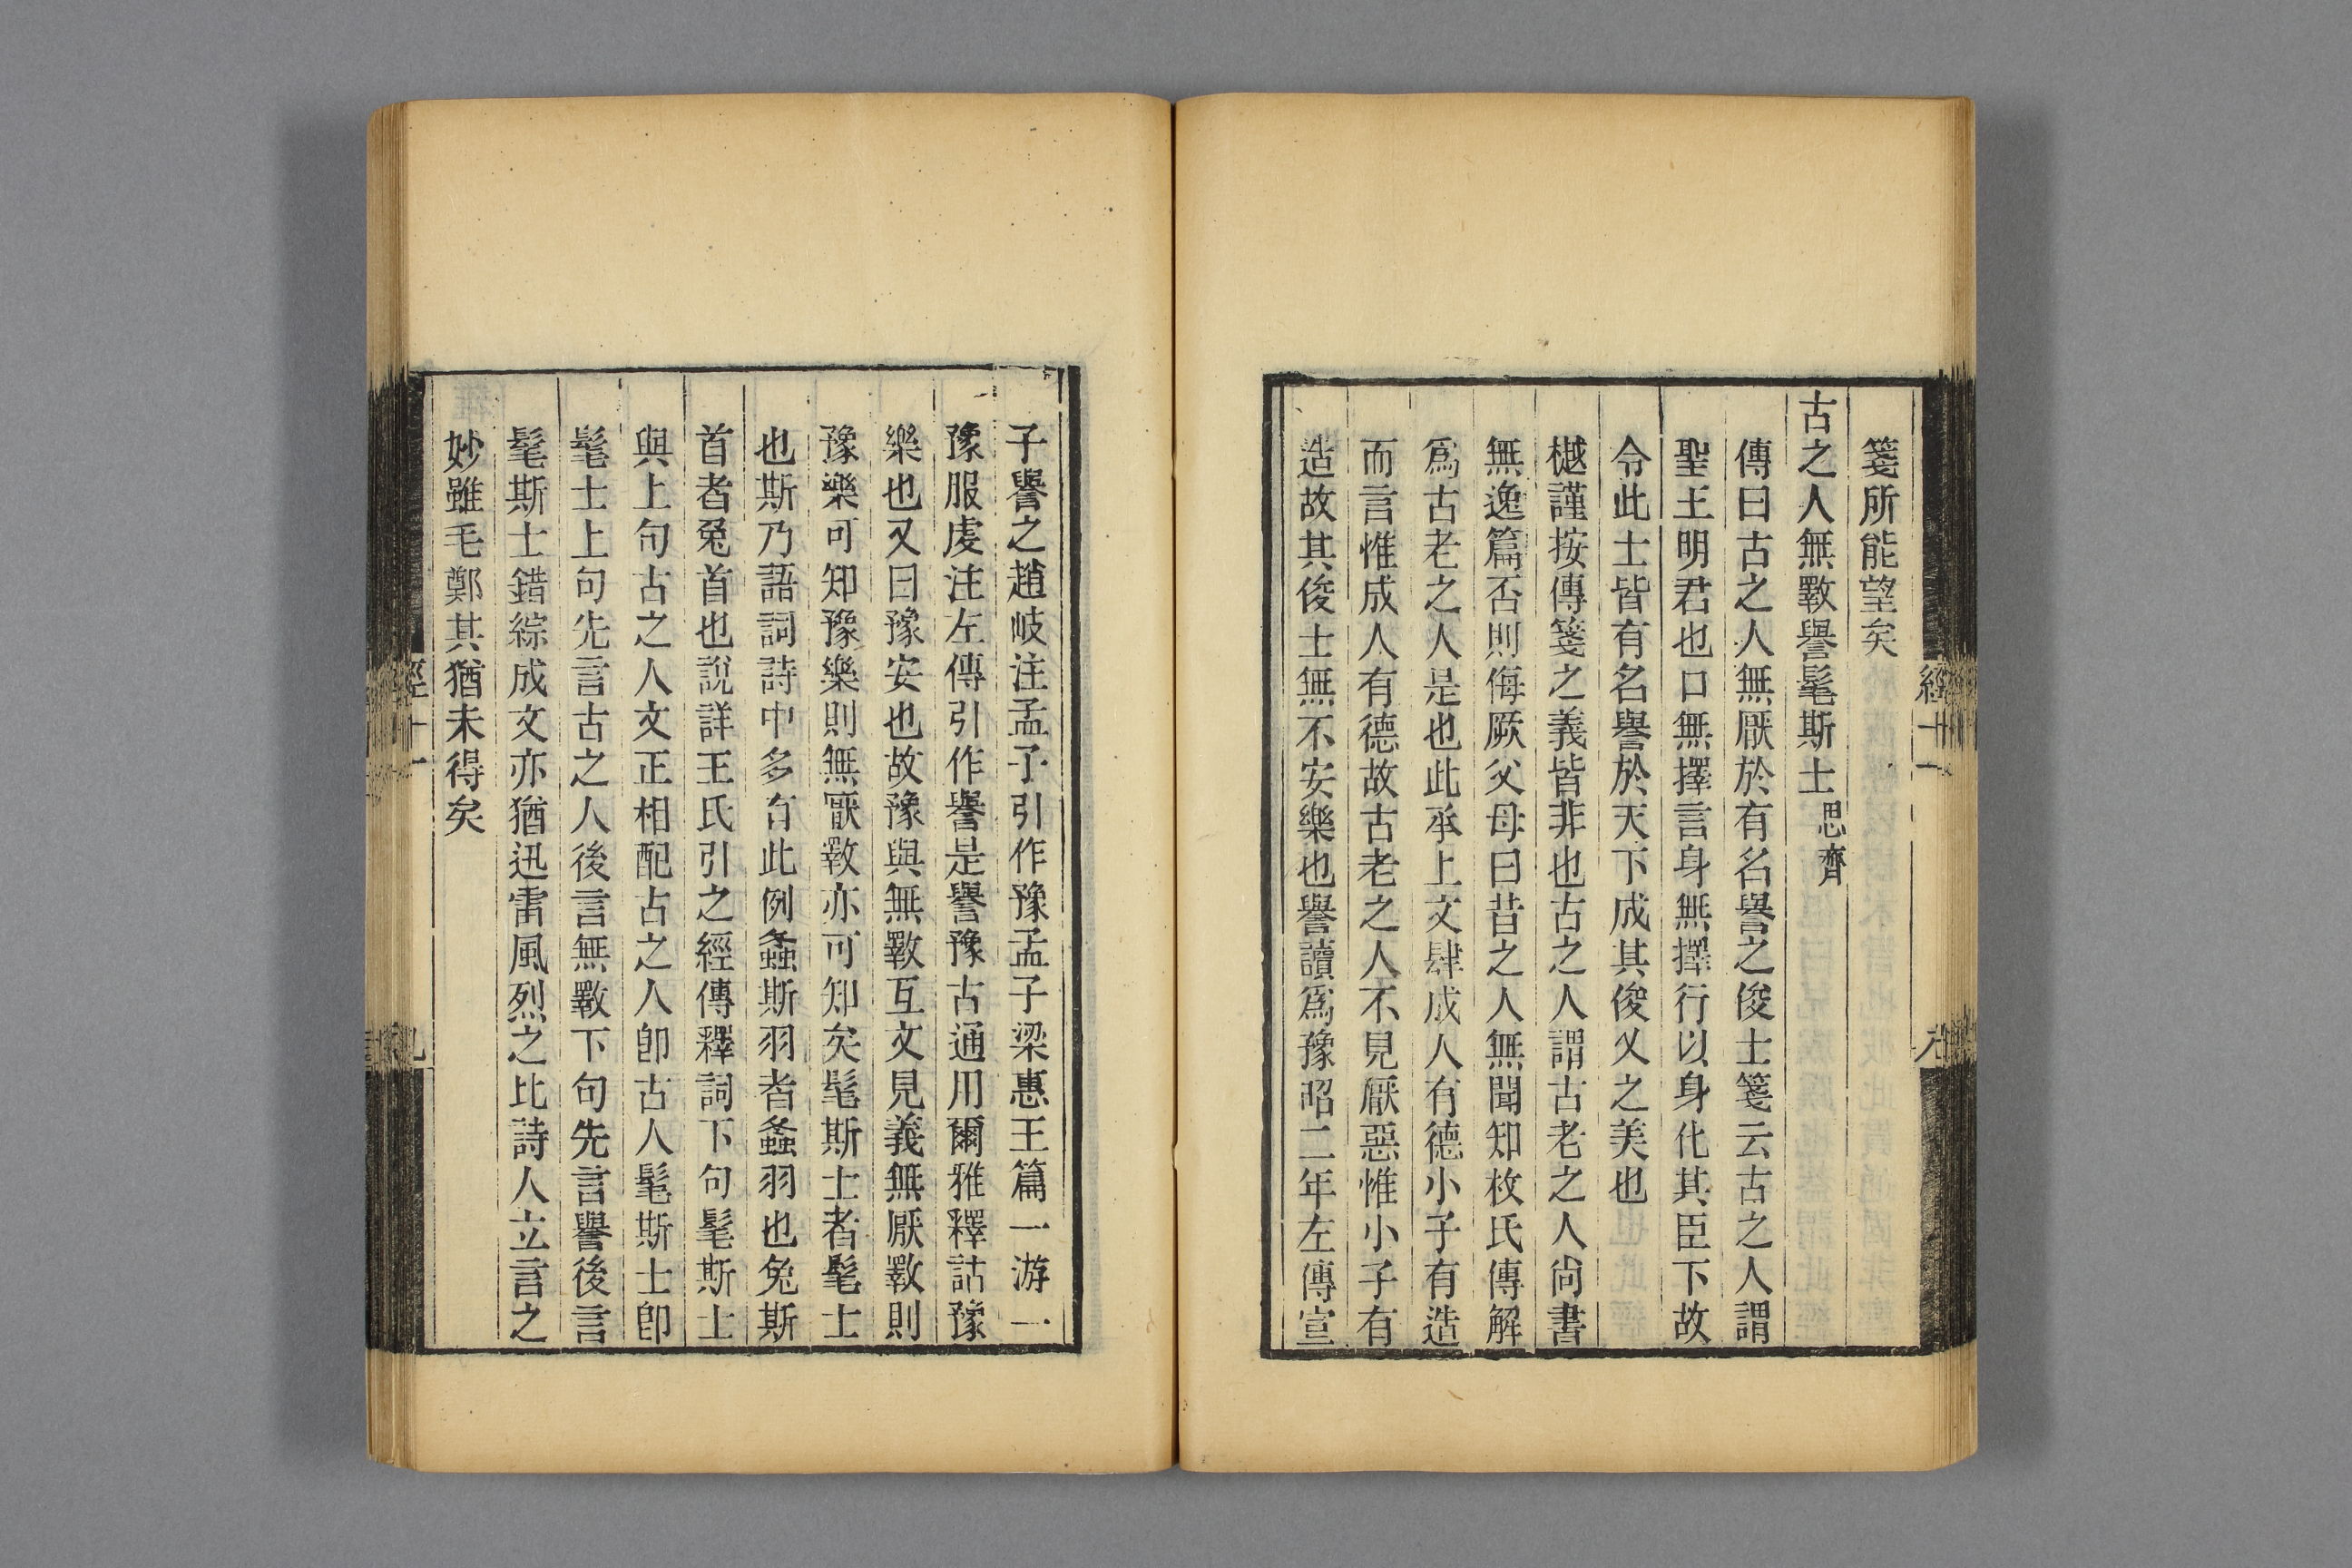 箋所能望矣
古之人無斁譽髦斯士思齊
傳曰古之人無厭於有名譽之俊士箋云古之人謂
聖王明君也口無擇言身無擇行以身化其臣下故
令此士皆有名譽於天下成其俊乂之美也
樾謹按傳箋之義皆非也古之人謂古老之人尚書
無逸篇否則侮厥父母曰昔之人無聞知枚氏傳解
爲古老之人是也此承上文肆成人有德小子有造
而言惟成人有德故古老之人不見厭惡惟小子有
造故其俊士無不安樂也譽讀爲豫昭二年左傳宣
子譽之趙岐注孟子引作豫孟子梁惠王篇一游一
豫服虔注左傳引作譽是譽豫古通用爾雅釋詁豫
樂也又曰豫安也故豫與無斁互文見義無厭斁則
豫樂可知豫樂則無厭斁亦可知矣髦斯士者髦士
也斯乃語詞詩中多有此例螽斯羽者螽羽也兔斯
首者兔首也說詳王氏引之經傳釋詞下句髦斯士
與上句古之人文正相配古之人卽古人髦斯士卽
髦士上句先言古之人後言無斁下句先言譽後言
髦斯士錯綜成文亦猶迅雷風烈之比詩人立言之
妙雖毛鄭其猶未得矣
經十一